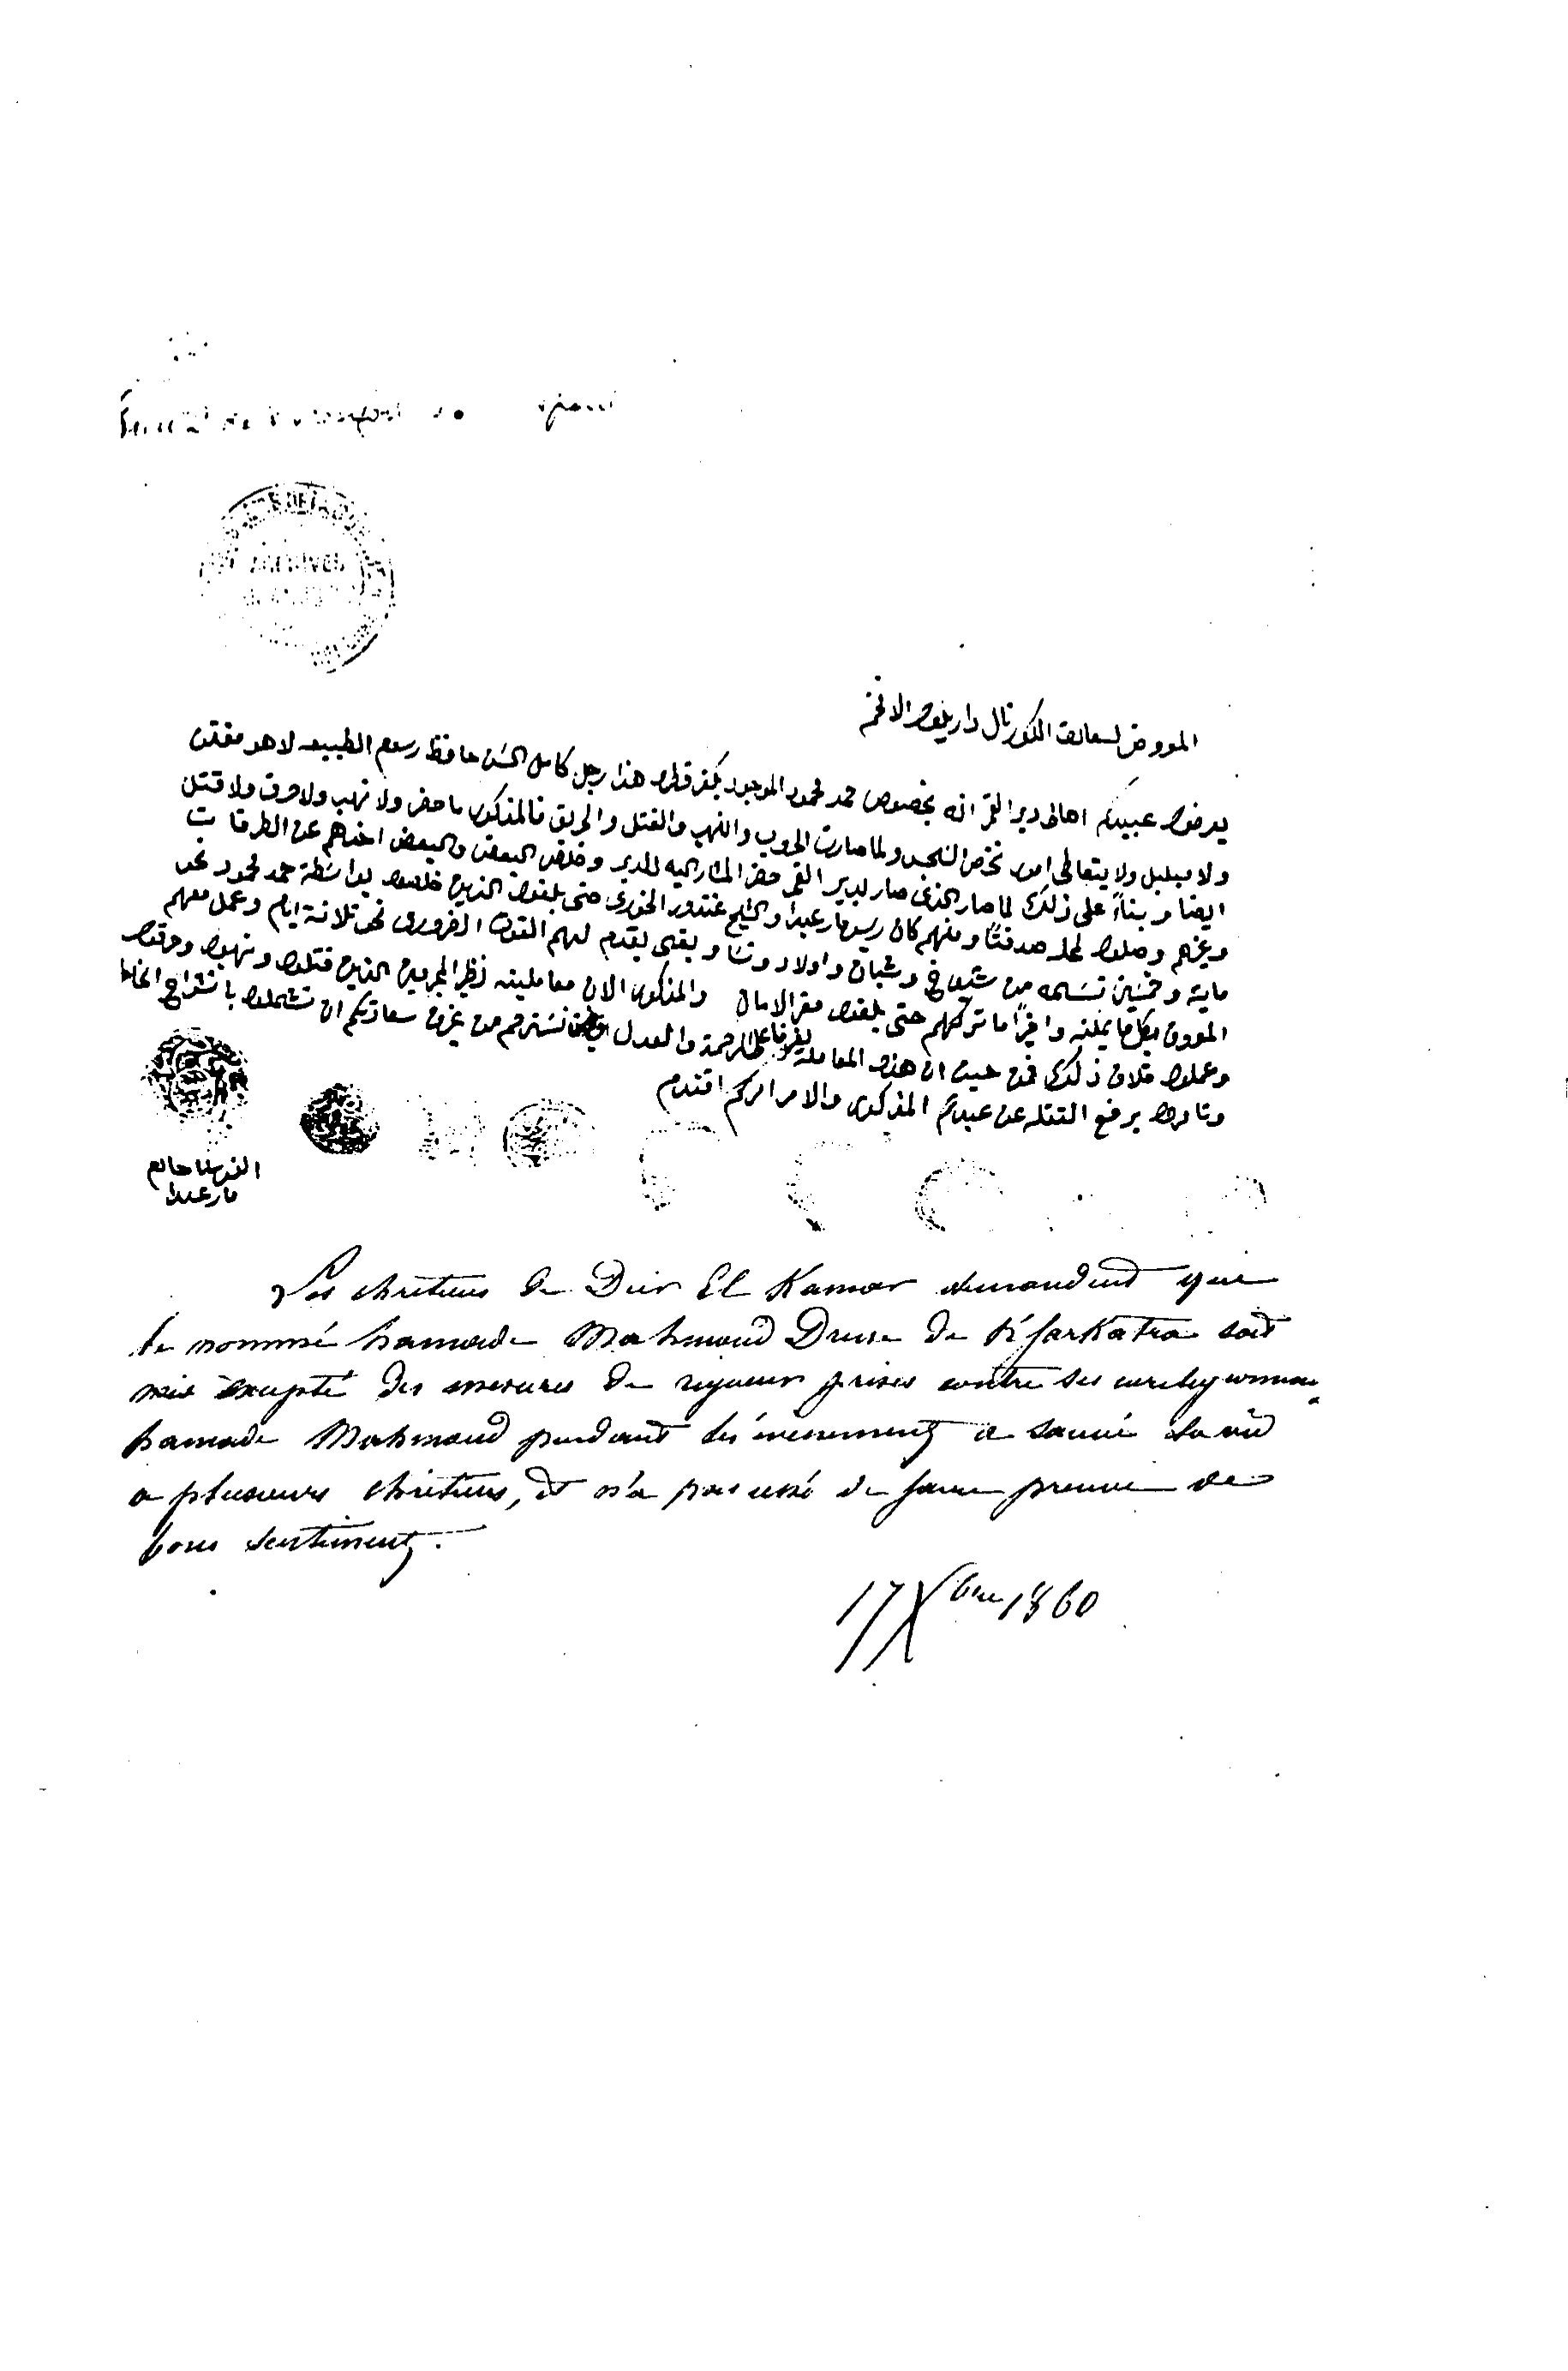 ARCHIVES
المعروض لسعادت الكورنال دار يلوه الافخم
يعرضوا عبيدكم اهالى دير القمر انه بخصوص حمد محمود الموجود بكفرقطره هذا رجل كامل الحسن حافظ رسوم الطبيعه لا هو مفتن
ولا مبلبل ولا يتعاطى امور تخص ولما صارت الحروب والنهب والقتل والحريق فالمذكور ما حضر ولا نهب ولا حرق ولا قتل
ايضا وبناءً على ذلك لما صار الذى صار لدير القمر حضر المشار اليه للدير وخلص البعض والبعض اخذهم عن الطرقات
وغيرهم وصلوا لمحله صدفتًا ومنهم كان ريس مار عبدا والشيخ غندور الخورى حتى بلغوا الذين خلصوا بواسطة حمد محمود نحو
ماية وخمسين نسمه من شيوخ وشبان واولاد ونسا وبقى يقدم لهم القوت الضرورى نحو ثلاثة ايام وعمل معهم
المعروف بكل ما يمكنه واخيرًا ما تركهم حتى بلغوا مقر الامان والمذكور الان معاملينه نظير المجرمين الذين قتلوا ونهبوا وحرقوا
وعملوا خلاف ذلك فمن حيث ان هذه المعاملة الرحمة والعدل نسترحم من سعادتكم ان تشملوا بانشراح الخاطر
وتامروا برفع التقله عن عبدكم المذكور والامر امركم افندم
مار عبدا
Les chrétiens de Deir El Kamar demandent que
le nommé hamade Mahmoud Druse de K'farKatra soit
mis excepté des mesures de rigueur prises contre ses coreligionnaires
hamade Mahmoud pendant les événements a sauvé la vie
a plusieurs chrétiens, et n'a pas cessé de faire preuve de
bons sentiments.
17 Xbre 1860